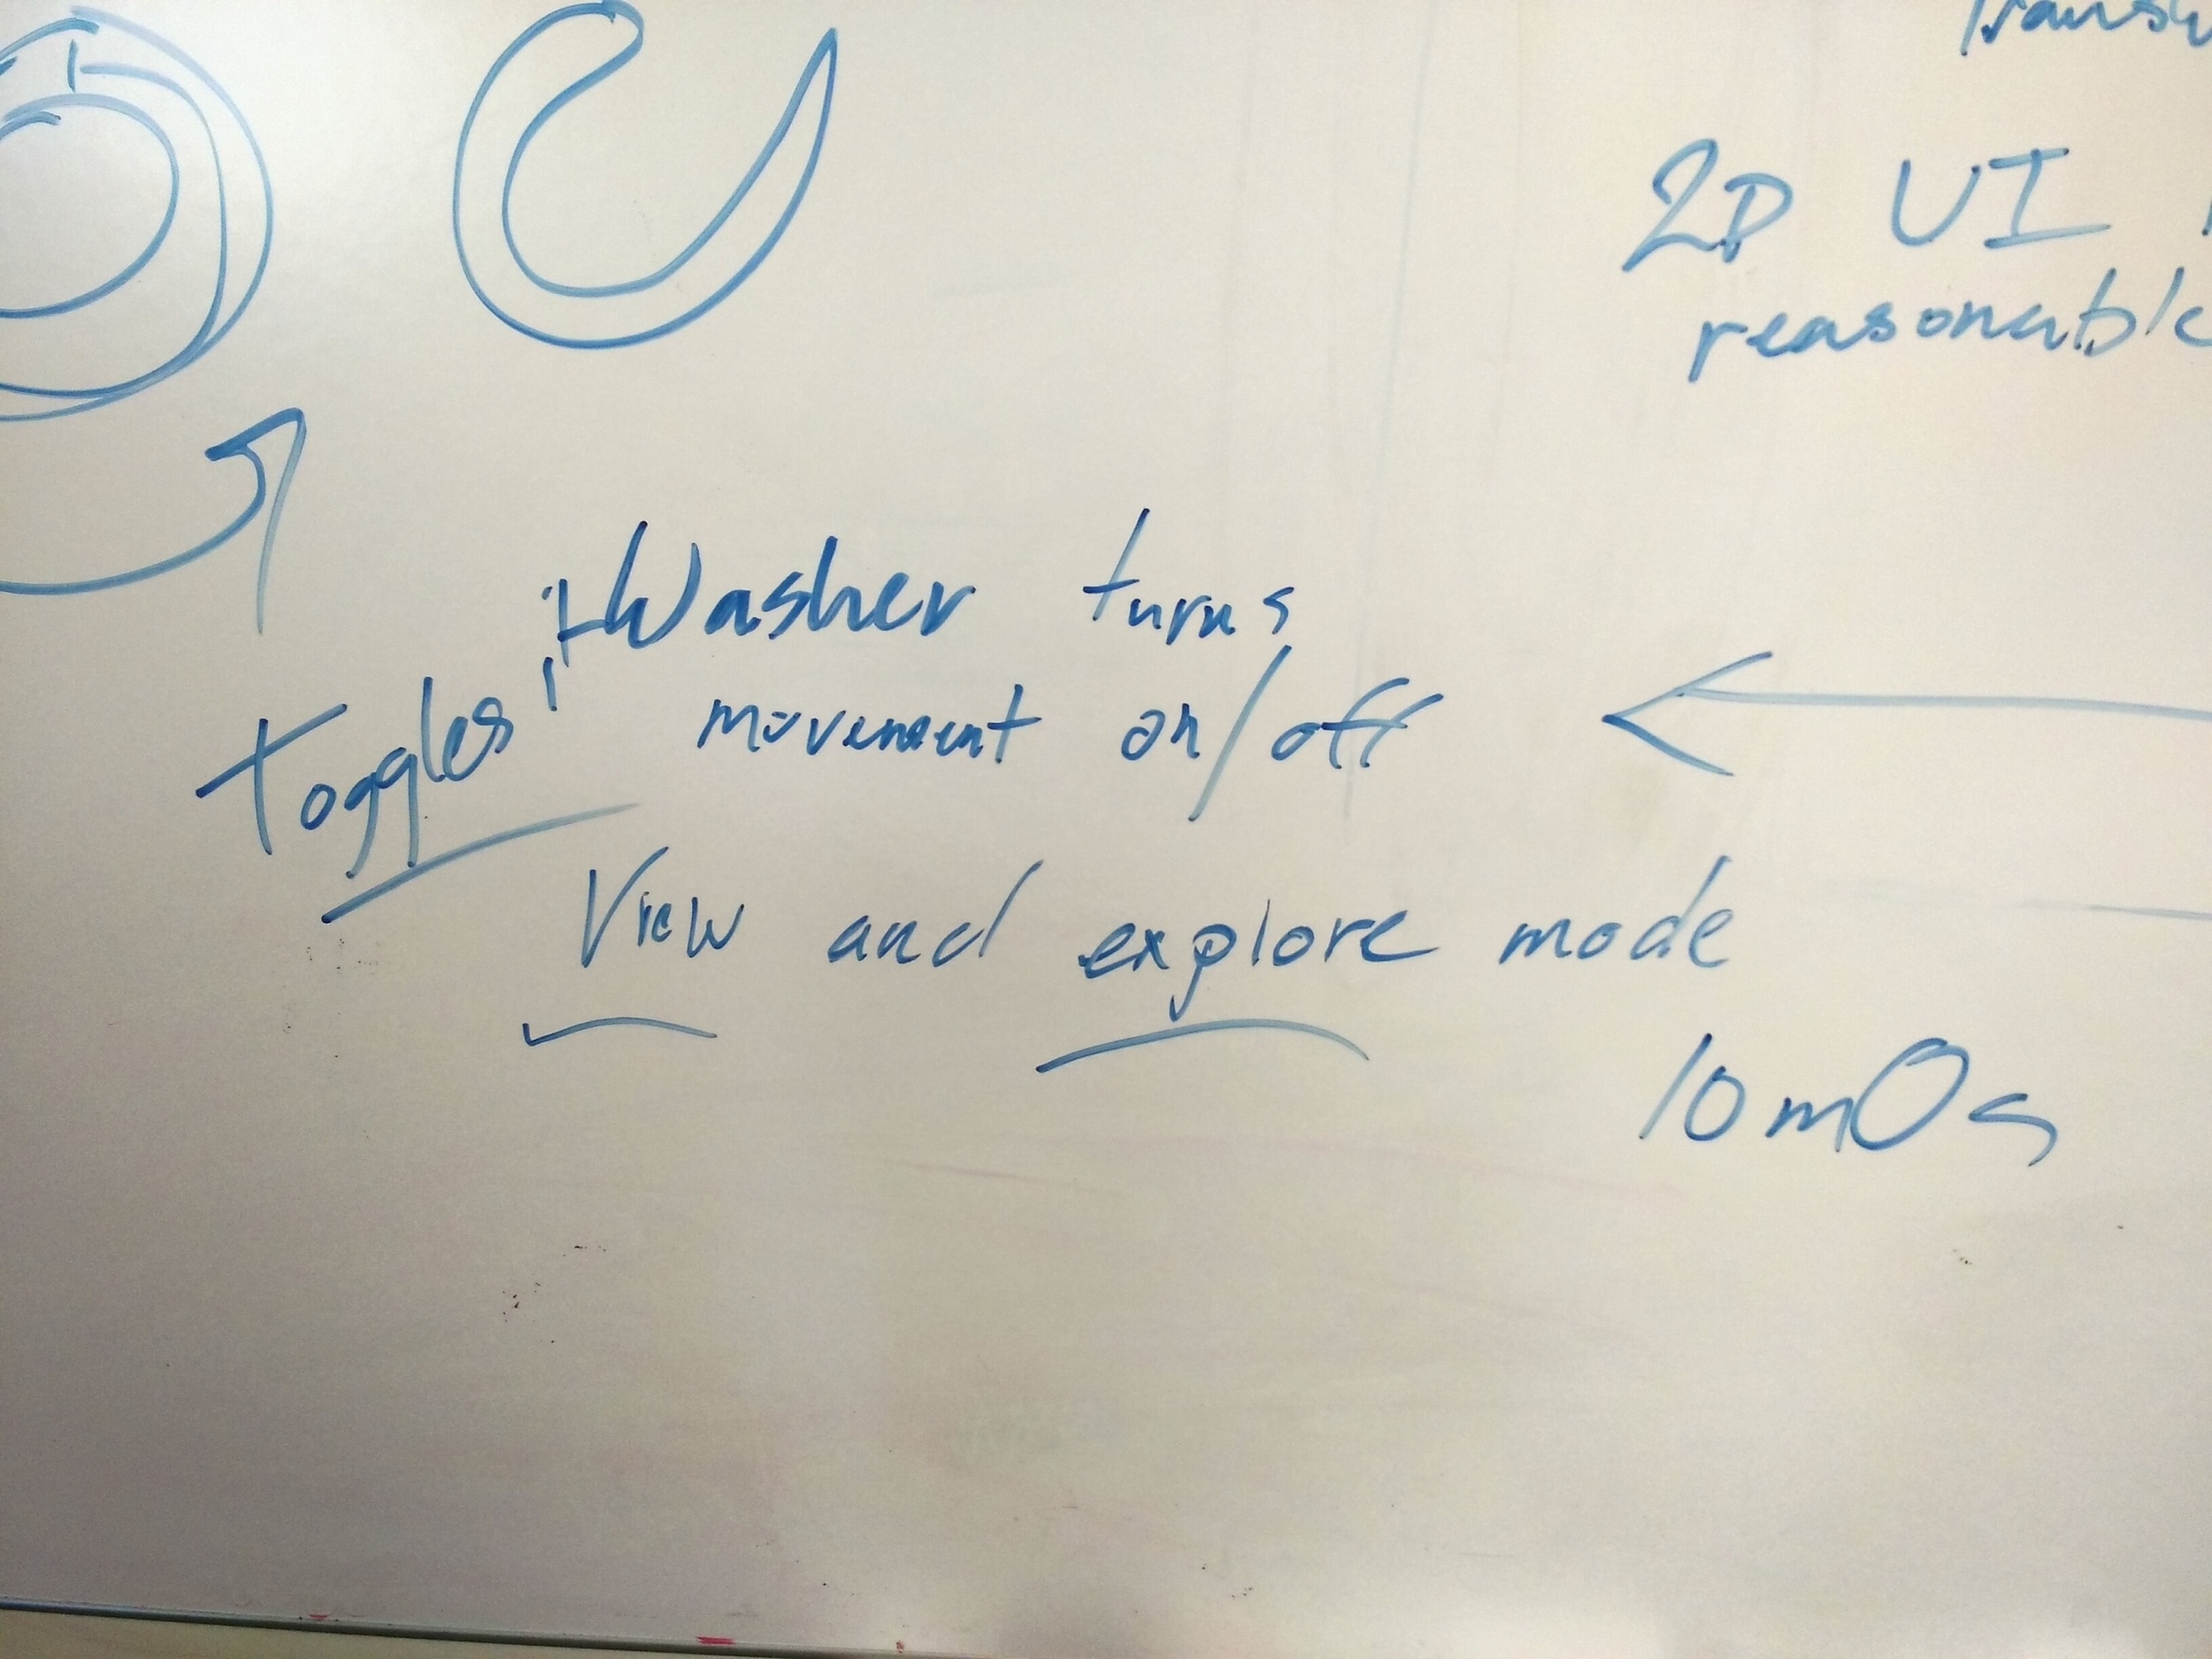 2D UI
reasonable
Washer turns
Toggles: movement on/off
View and explore mode
10 mOs